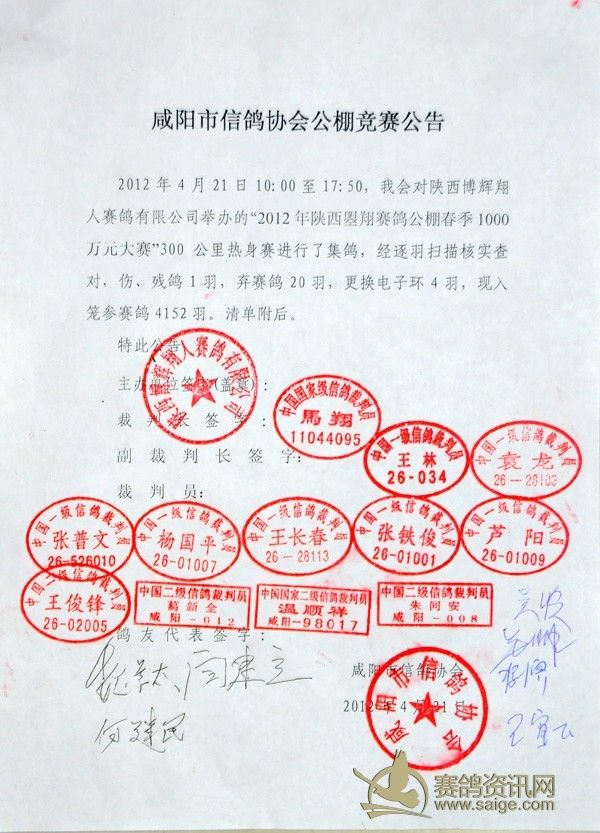 咸阳市信鸽协会公棚竞赛公告
2012年4月21日10:00至17:50，我会对陕西博辉翔
人赛鸽有限公司举办的“2012年陕西曌翔赛鸽公棚春季1000
万元大赛”300 公里热身赛进行了集鸽，经逐羽扫描核实查
对，伤、残鸽1羽，弃赛鸽20羽，更换电子环4羽，现入
笼参赛鸽4152羽。清单附后。
特此公告
主办单位签字(盖章):
陕西博辉翔人赛鸽有限公司
裁判长签字:
中国国家级信鸽裁判员
馬翔
11044095
副裁判长签字:
中国一级信鸽裁判员
王林
26-034
中国一级信鸽裁判员
袁龙
26-28103
裁判员:
中国一级信鸽裁判员
张普文
26-526010
中国一级信鸽裁判员
杨国平
26-01007
中国一级信鸽裁判员
王长春
26-28113
中国一级信鸽裁判员
张铁俊
26-01001
中国一级信鸽裁判员
芦阳
26-01009
中国一级信鸽裁判员
王俊锋
26-02005
中国二级信鸽裁判员
葛新全
咸阳-012
中国国家二级信鸽裁判员
温顺祥
咸阳-98017
中国二级信鸽裁判员
朱同安
咸阳-008
鸽友代表签字:
咸阳市信鸽协会
2012年4月21日
咸阳市信鸽协会
赛鸽资讯网
www.saige.com